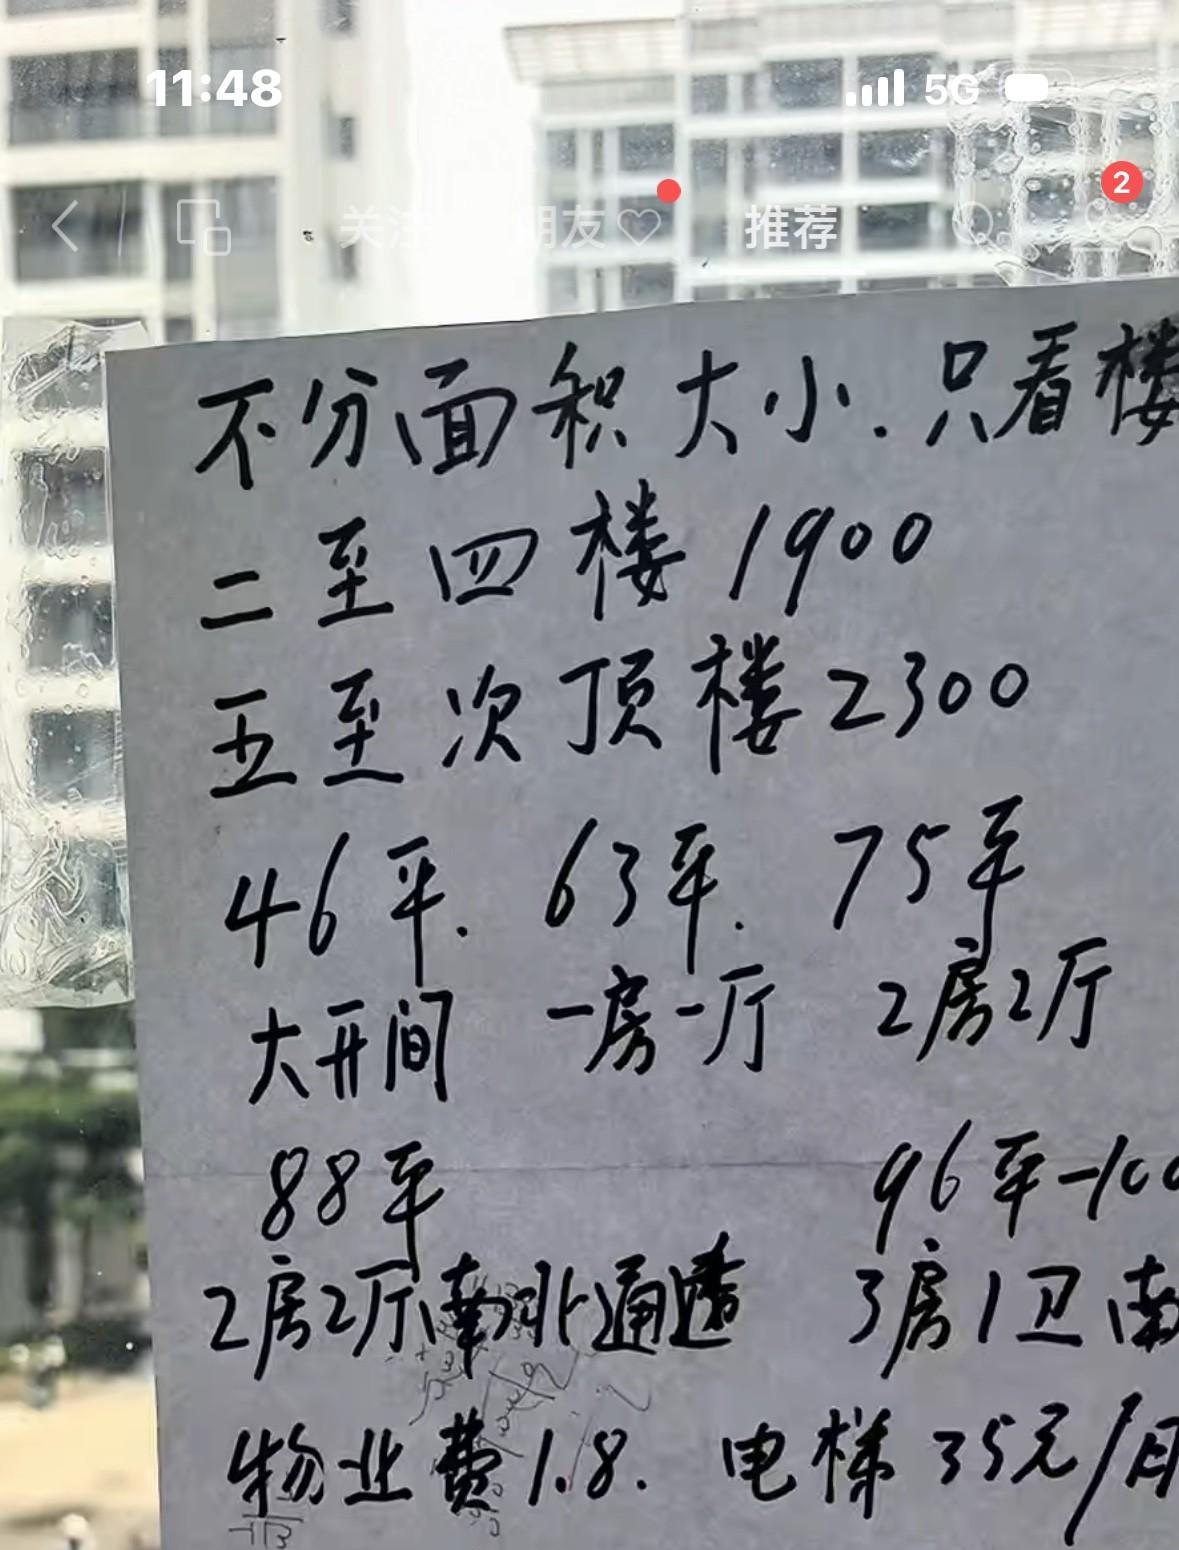 11:48
5G
2
关注
朋友
推荐
不分面积大小.只看楼
二至四楼 1900
五至次顶楼 2300
46平. 63平. 75平
大开间 一房一厅 2房2厅
88平 96平-100
2房2厅南北通透 3房1卫南
物业费1.8. 电梯 35元/月